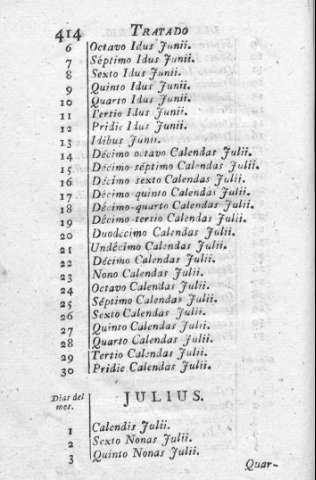 414 TRATADO
6 Octavo Idus Junii.
7 Séptimo Idus Junii.
8 Sexto Idus Junii.
9 Quinto Idus Junii.
10 Quarto Idus Junii.
11 Tertio Idus Junii.
12 Pridie Idus Junii.
13 Idibus Junii.
14 Décimo octavo Calendas Julii.
15 Décimo séptimo Calendas Julii.
16 Décimo sexto Calendas Julii.
17 Décimo quinto Calendas Julii.
18 Décimo quarto Calendas Julii.
19 Décimo tertio Calendas Julii.
20 Duodécimo Calendas Julii.
21 Undécimo Calendas Julii.
22 Décimo Calendas Julii.
23 Nono Calendas Julii.
24 Octavo Calendas Julii.
25 Séptimo Calendas Julii.
26 Sexto Calendas Julii.
27 Quinto Calendas Julii.
28 Quarto Calendas Julii.
29 Tertio Calendas Julii.
30 Pridie Calendas Julii.
Dias del
mes.
JULIUS.
1 Calendis Julii.
2 Sexto Nonas Julii.
3 Quinto Nonas Julii.
Quar-